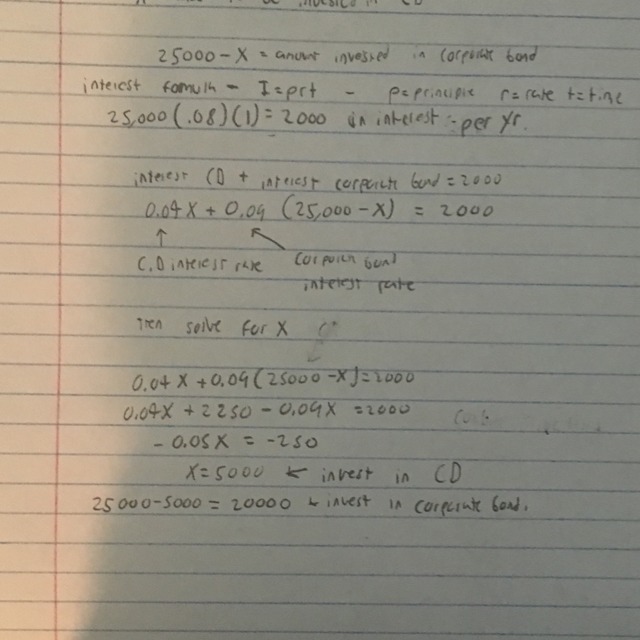 to be invested in CD
25000-X = amount invested in corporate bond
interest formula - I=prt - p=principle r=rate t=time
25,000 (.08)(1) = 2000 in interest - per yr.
interest CD + interest corporate bond = 2000
0.04X + 0.09 (25,000-X) = 2000
C.D interest rate
corporate bond
interest rate
Then solve for X
0.04X + 0.09(25000-X)=2000
0.04X + 2250 - 0.09X = 2000
- 0.05X = -250
X=5000 ← invest in CD
25000-5000 = 20000 ← invest in corporate bond.